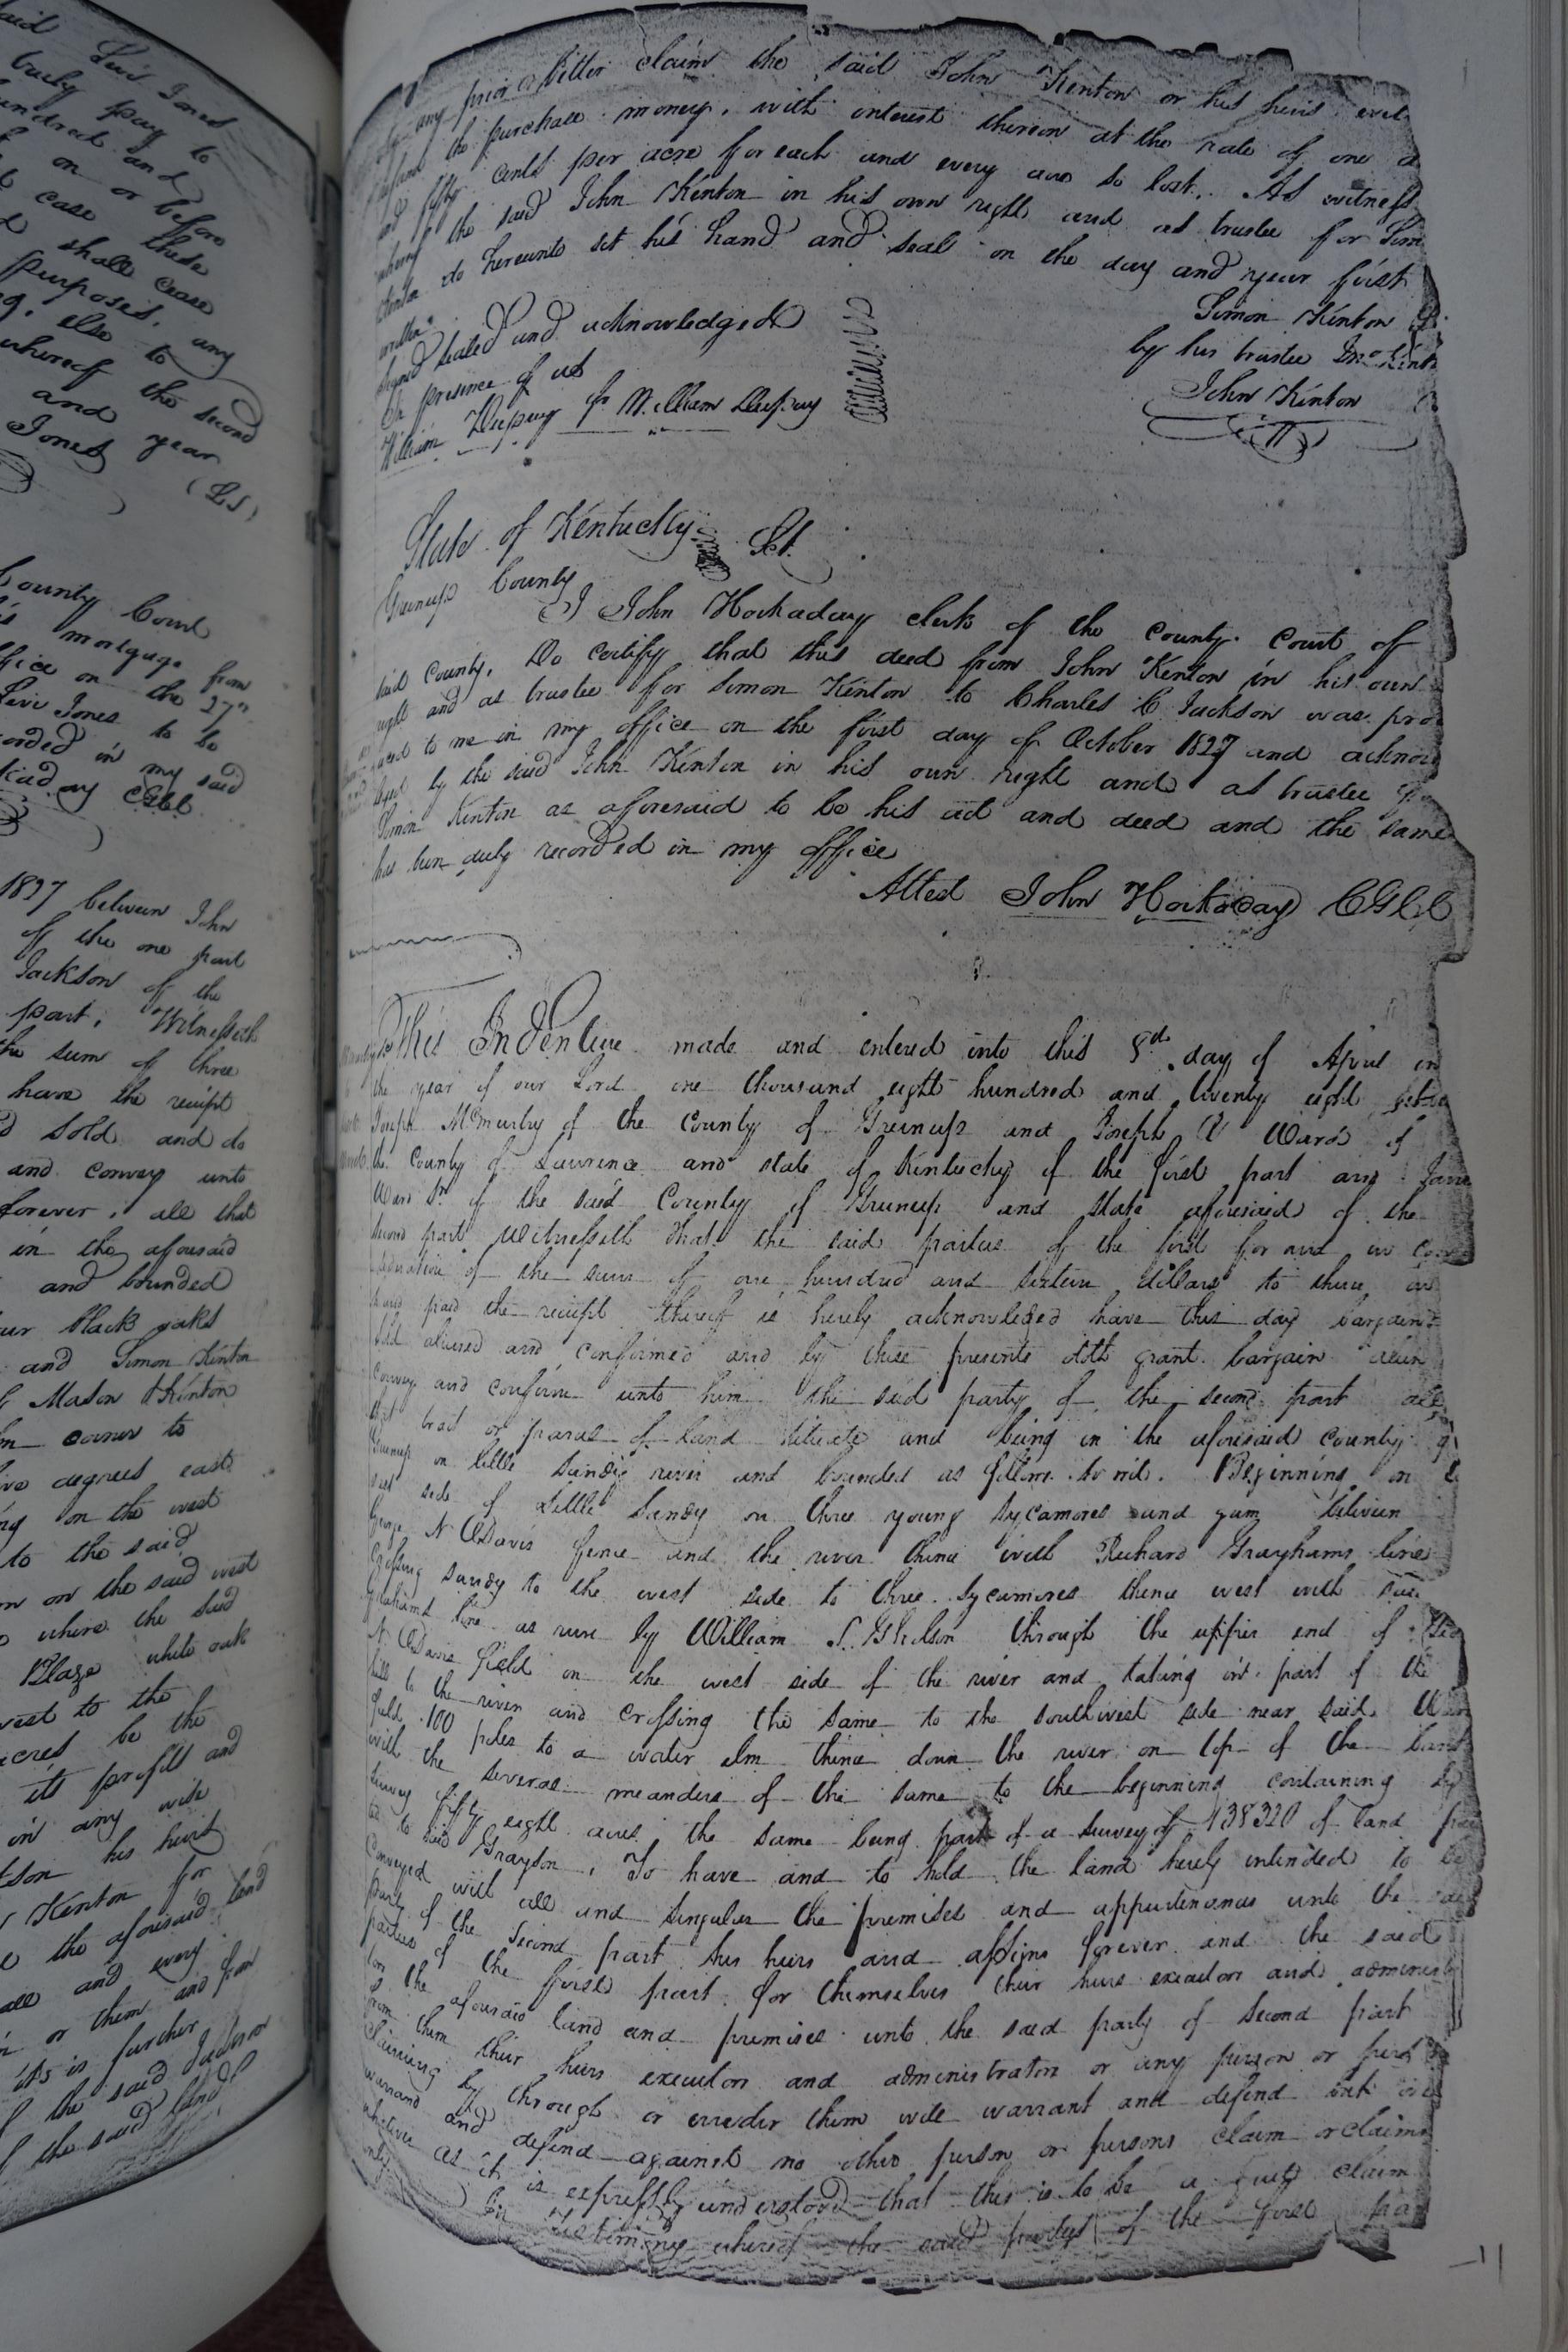 said Levi Jones
truly pay to
hundred and
on or before
case these
shall cease
purposes, any
else to
whereof the second
and year
Jones
(LS)
County Court
mortgage from
office on the 27th
Levi Jones to be
recorded in my said
CGCC
1827 between John
of the one part
Jackson of the
part, Witnesseth
the sum of three
have the receipt
sold and do
and convey unto
forever, all that
in the aforesaid
and bounded
black oaks
and Simon Kenton
Mason & Kenton
corner to
degrees east
on the west
to the said
on the said west
where the said
Blaze white oak
west to the
acres be the
its profit and
in any wise
his heirs
Kenton for
the aforesaid land
all and every
or them and from
its is further
the said Jackson
of the said land
by any prior or better claim the said John Kenton or his heirs
refund the purchase money, with interest thereon at the rate of one
and fifty cents per acre for each and every acre so lost. As witness
whereof the said John Kenton in his own right and as trustee for Sim
Kenton do hereunto set his hand and seal on the day and year first
written
Signed sealed and acknowledged
In presence of us
William Dupuy Jr William Dupuy
Simon Kenton
by his trustee Jno Kent
John Kenton
State of Kentucky Sct.
Greenup County
I John Hockaday clerk of the County Court of
said County, Do certify that this deed from John Kenton in his own
right and as trustee for Simon Kenton to Charles C Jackson was pro
duced to me in my office on the first day of October 1827 and acknow
ledged by the said John Kenton in his own right and as trustee
Simon Kenton as aforesaid to be his act and deed and the same
has been duly recorded in my office
Attest John Hockaday CGCC
This Indenture made and entered into this day of April in
the year of our Lord one thousand eight hundred and twenty eight betw
Joseph McMurtry of the County of Greenup and Joseph Ward of
the County of Lawrence and state of Kentucky of the first part and Jam
Ward Sr of the said County of Greenup and state aforesaid of the
second part Witnesseth that the said parties of the first for and in con
sideration of the sum of one hundred and sixteen dollars to them in
hand paid the receipt thereof is hereby acknowledged have this day bargaind
sold aliened and confirmed and by these presents doth grant bargain alien
convey and confirm unto him the said party of the second part all
that tract or parcel of land situate and being in the aforesaid county of
Greenup on little Sandy river and bounded as follows to wit. Beginning on
east side of Little Sandy on three young sycamores and gum between
George N Davis fence and the river thence with Richard Grayhams line
Crossing sandy to the west side to three sycamores thence west with said
Grahams line as run by William through the upper end of Geo
N Davis field on the west side of the river and taking in part of the
hill to the river and crossing the same to the southwest side near said
field 100 poles to a water elm thence down the river on top of the bank
with the several meanders of the same to the beginning containing by
survey fifty eight acres the same being part of a survey of 138320 of land
to said Grayson, To have and to hold the land hereby intended to be
conveyed with all and singular the premises and appurtenances unto the said
party of the second part his heirs and assigns forever and the said
parties of the first part for themselves their heirs executors and administra
tors the aforesaid land and premises unto the said party of second part
from them their heirs executors and administrators or any person or pers
claiming by through or under them will warrant and defend but
warrant and defend against no other person or persons claim or claims
whatever as it is expressly understood that this is to be a quit claim
only In testimony whereof the said parties of the first par